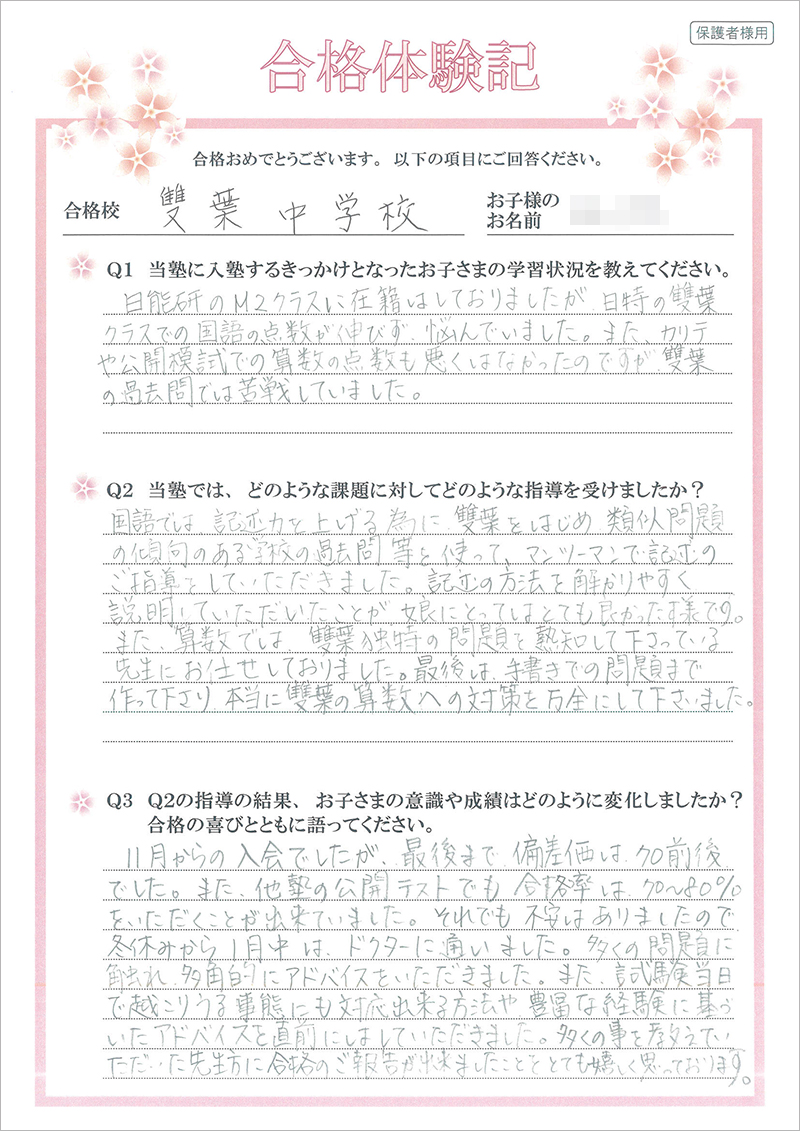 保護者様用
合格体験記
合格おめでとうございます。以下の項目にご回答ください。
合格校 雙葉中学校
お子様の
お名前
Q1 当塾に入塾するきっかけとなったお子さまの学習状況を教えてください。
日能研のM2クラスに在籍はしておりましたが、日特の雙葉
クラスでの国語の点数が伸びず、悩んでいました。また、カリテ
や公開模試での算数の点数も悪くはなかったのですが、雙葉
の過去問では苦戦していました。
Q2 当塾では、どのような課題に対してどのような指導を受けましたか？
国語では、記述力を上げる為に、雙葉をはじめ、類似問題
の傾向のある学校の過去問等を使って、マンツーマンで記述の
ご指導をしていただきました。記述の方法を解かりやすく
説明していただいたことが娘にとってはとても良かった様です。
また、算数では、雙葉独特の問題を熟知して下さっている
先生にお任せしておりました。最後は、手書きでの問題まで
作って下さり、本当に雙葉の算数への対策を万全にして下さいました。
Q3 Q2の指導の結果、お子さまの意識や成績はどのように変化しましたか？
合格の喜びとともに語ってください。
11月からの入会でしたが、最後まで偏差値は70前後
でした。また、他塾の公開テストでも合格率は、70～80%
をいただくことが出来ていました。それでも不安はありましたので
冬休みから1月中は、ドクターに通いました。多くの問題に
触れ、多角的にアドバイスをいただきました。また、試験当日
で起こりうる事態にも対応出来る方法や、豊富な経験に基づ
いたアドバイスを直前にはしていただきました。多くの事を教えてい
ただいた先生方に合格のご報告が出来ましたことをとても嬉しく思っております。